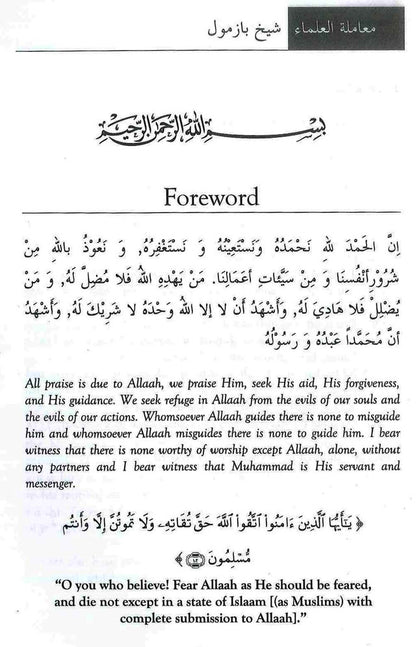 معاملة العلماء شيخ بازمول
بِسْمِ اللهِ الرَّحْمٰنِ الرَّحِيْمِ
Foreword
إِنَّ الْحَمْدَ لِلهِ نَحْمَدُهُ وَنَسْتَعِيْنُهُ وَ نَسْتَغْفِرُهُ, وَ نَعُوْذُ بِاللهِ مِنْ
شُرُوْرِأَنْفُسِنَا وَ مِنْ سَيِّئَاتِ أَعْمَالِنَا. مَنْ يَهْدِهِ اللهُ فَلَا مُضِلَّ لَهُ, وَ مَنْ
يُضْلِلْ فَلَا هَادِيَ لَهُ, وَأَشْهَدُ أَنْ لَا إِلا اللهُ وَحْدَهُ لَا شَرِيْكَ لَهُ, وَأَشْهَدُ
أَنَّ مُحَمَّداً عَبْدُهُ وَ رَسُوْلُهُ
All praise is due to Allaah, we praise Him, seek His aid, His forgiveness,
and His guidance. We seek refuge in Allaah from the evils of our souls and
the evils of our actions. Whomsoever Allaah guides there is none to misguide
him and whomsoever Allaah misguides there is none to guide him. I bear
witness that there is none worthy of worship except Allaah, alone, without
any partners and I bear witness that Muhammad is His servant and
messenger.
﴿ يَٰٓأَيُّهَا ٱلَّذِينَ ءَامَنُوا۟ ٱتَّقُوا۟ ٱللَّهَ حَقَّ تُقَاتِهِۦ وَلَا تَمُوتُنَّ إِلَّا وَأَنتُم
مُّسْلِمُونَ ﴾
“O you who believe! Fear Allaah as He should be feared,
and die not except in a state of Islaam [(as Muslims) with
complete submission to Allaah].”